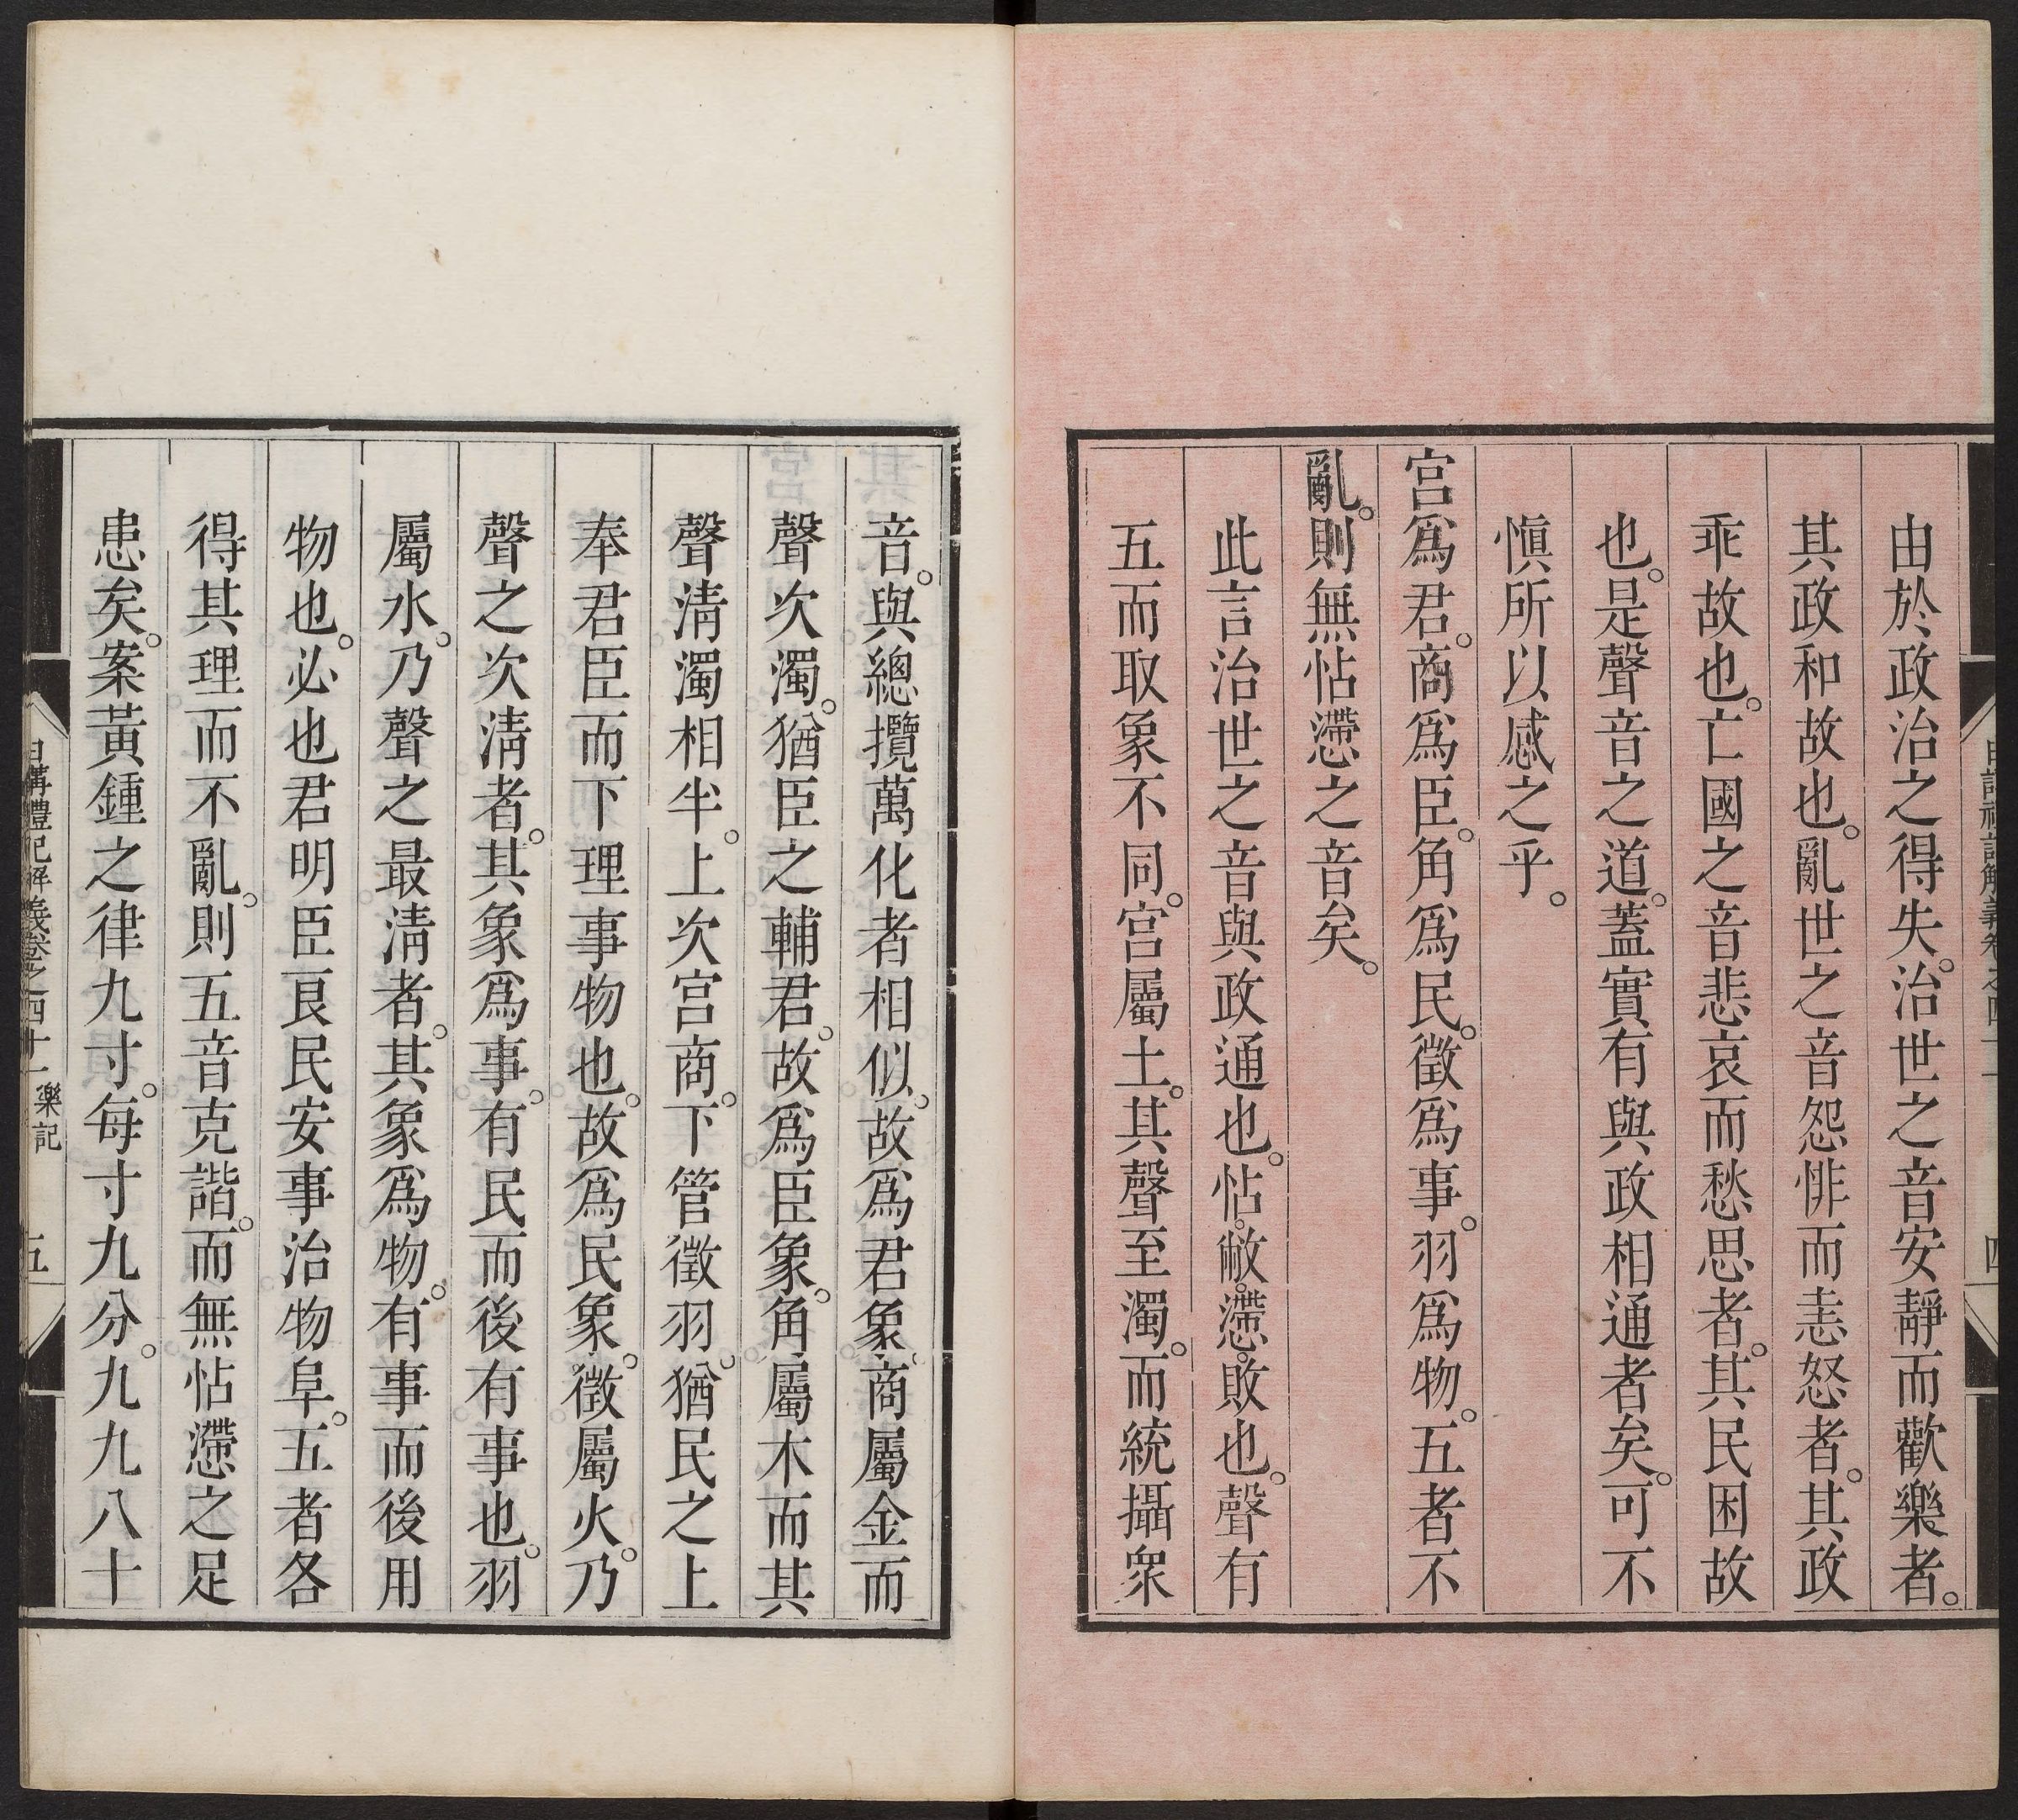 由於政治之得失。治世之音安靜而歡樂者。
其政和故也。亂世之音怨悱而恚怒者。其政
乖故也。亡國之音悲哀而愁思者。其民困故
也。是聲音之道。蓋實有與政相通者矣。可不
愼所以感之乎。
宮爲君。商爲臣。角爲民。徵爲事。羽爲物。五者不
亂。則無怗懘之音矣。
此言治世之音與政通也。怗。敝。懘。敗也。聲有
五而取象不同。宮屬土。其聲至濁。而統攝衆
音。與總攬萬化者相似。故爲君象。商屬金而
聲次濁。猶臣之輔君。故爲臣象。角屬木而其
聲淸濁相半。上次宮商。下管徵羽。猶民之上
奉君臣而下理事物也。故爲民象。徵屬火。乃
聲之次淸者。其象爲事。有民而後有事也。羽
屬水。乃聲之最淸者。其象爲物。有事而後用
物也。必也君明臣良民安事治物阜。五者各
得其理而不亂。則五音克諧。而無怗懘之足
患矣。案黃鍾之律九寸。每寸九分。九九八十
日講禮記解義卷之四十一 樂記 五